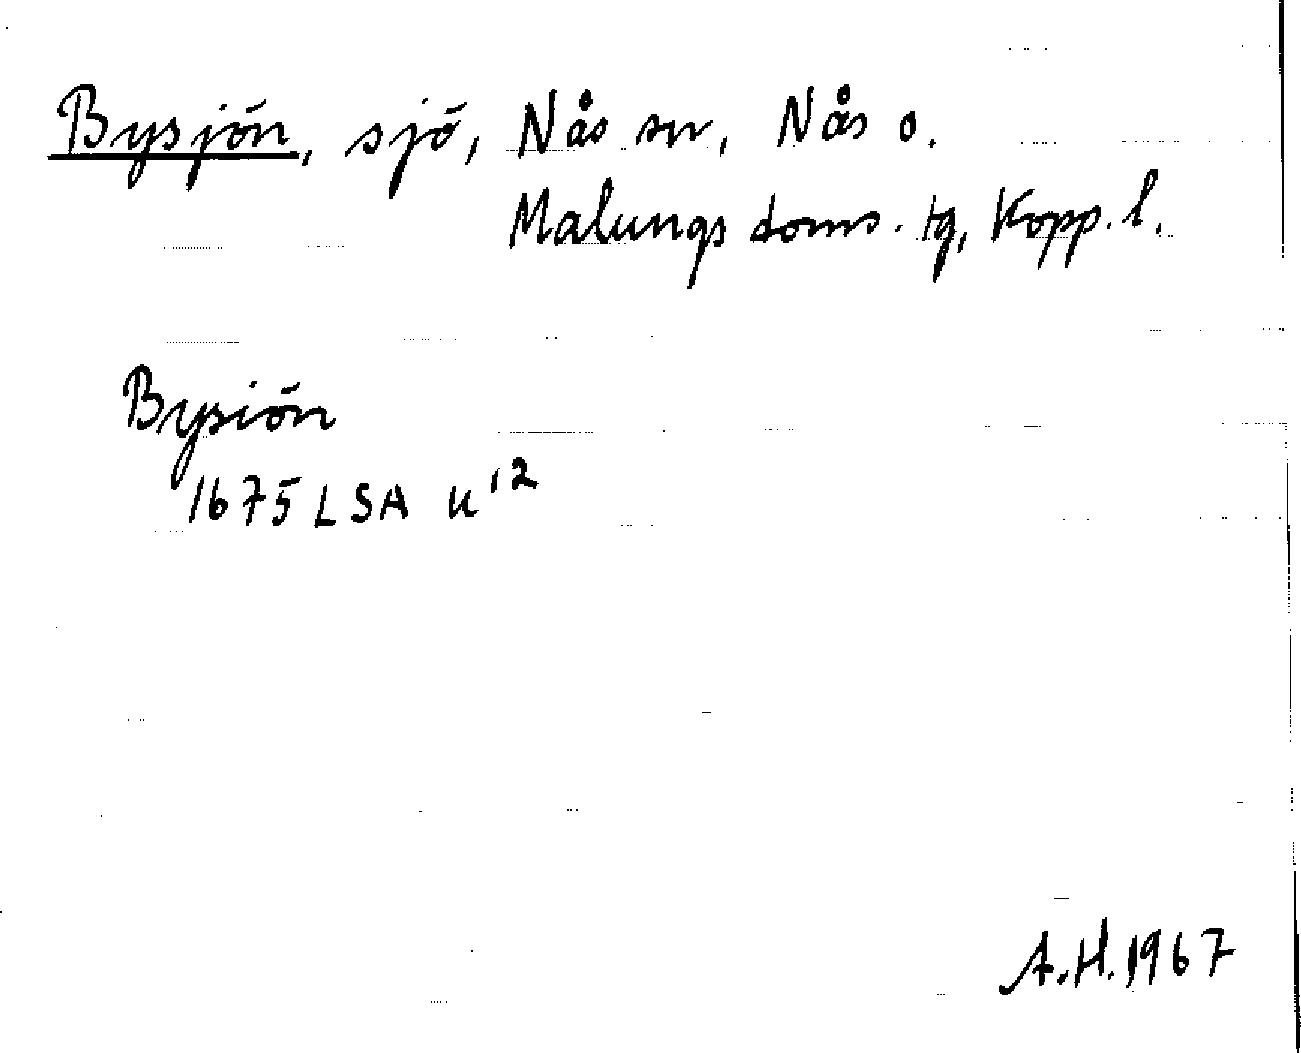 Bysjön, sjö, Nås sn, Nås o.
Malungs doms. tg, Kopp. l.
Bysiön
1675 LSA U'2
A.H. 1967